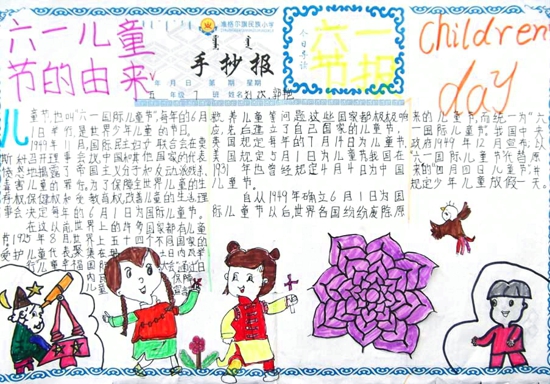 六一儿童
节的由来
准格尔旗民族小学
手抄报
年 月 日 第 期 星期
年级 班 姓名
今日导读
六一
节报
Children
day
儿童节,也叫"六一国际儿童节",每年的6月
1日举行,是世界少年儿童的节日。
1949年11月,国际民主妇联合会在莫
斯科召开理事会议,中国和其他国家的代表
愤然地揭露了帝国主义分子和反动派残杀、
毒害儿童的罪行,为了保障全世界儿童的生
存权、保健权和受教育权,改善儿童的生活,理
事会决定每年的6月1日为国际儿童节。
在这以前,世界上的许多国家都有儿童
节,1925年8月世界上五十四个不同国家的
爱护儿童代表聚集在
儿童等问题,这些国家都积极响
应,先后建立了自己国家的儿童节。
英国规定每年的7月14日为儿童节,
美国规定5月1日为儿童节,我国在
1931年也曾经规定4月4日为中国
儿童节。
自从1949年确立6月1日为国际
儿童节以后,世界各国纷纷废除原
来的儿童节,而统一为"六
一国际儿童节"。我国中央
政府1949年12月宣布,以
"六一国际儿童节"代替原
来的"四月四日儿童节",并
规定少年儿童放假一天。